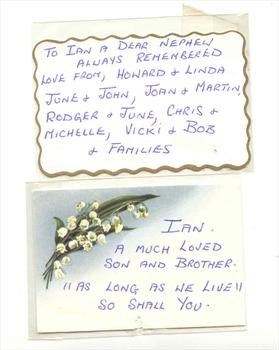 TO IAN A DEAR NEPHEW
ALWAYS REMEMBERED
LOVE FROM, HOWARD & LINDA
JUNE & JOHN, JOAN & MARTIN,
RODGER & JUNE, CHRIS &
MICHELLE, VICKI & BOB
& FAMILIES
IAN.
A MUCH LOVED
SON AND BROTHER.
"AS LONG AS WE LIVE"
SO SHALL YOU.